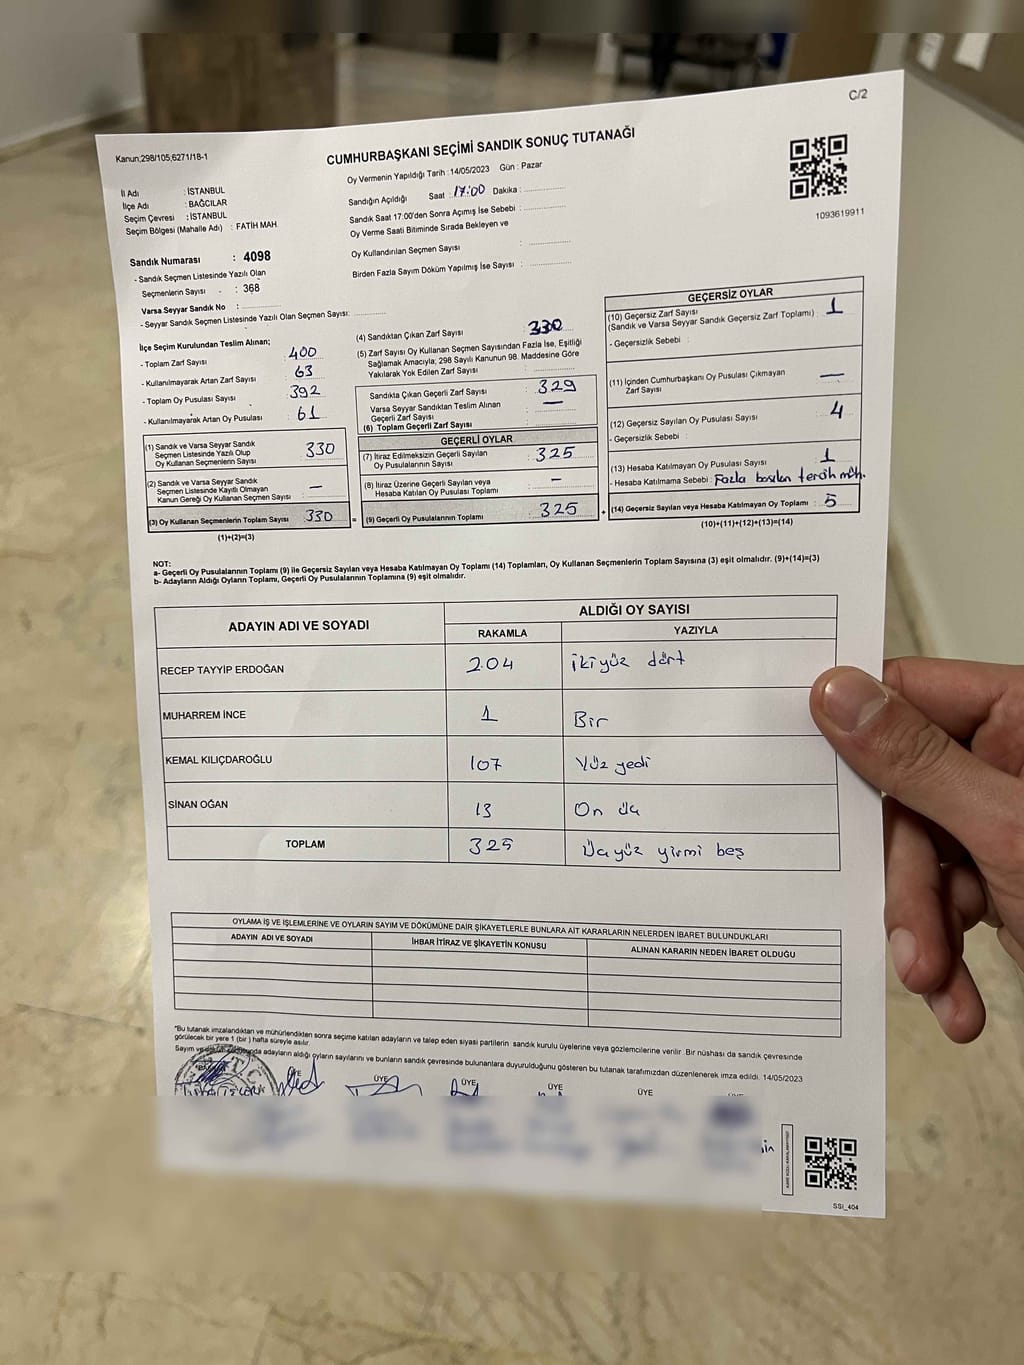 C/2
Kanun;298/105,6271/18-1
CUMHURBAŞKANI SEÇİMİ SANDIK SONUÇ TUTANAĞI
Oy Vermenin Yapıldığı Tarih :14/05/2023 Gün : Pazar
1093619911
İl Adı : İSTANBUL
İlçe Adı : BAĞCILAR
Seçim Çevresi : İSTANBUL
Seçim Bölgesi (Mahalle Adı) : FATİH MAH
Sandık Numarası : 4098
- Sandık Seçmen Listesinde Yazılı Olan
Seçmenlerin Sayısı : 368
Varsa Seyyar Sandık No :
- Seyyar Sandık Seçmen Listesinde Yazılı Olan Seçmen Sayısı:
Sandığın Açıldığı Saat : 17:00 Dakika :
Sandık Saat 17:00'den Sonra Açılmış İse Sebebi :
Oy Verme Saati Bitiminde Sırada Bekleyen ve
Oy Kullandırılan Seçmen Sayısı :
Birden Fazla Sayım Döküm Yapılmış İse Sayısı :
İlçe Seçim Kurulundan Teslim Alınan;
- Toplam Zarf Sayısı : 400
- Kullanılmayarak Artan Zarf Sayısı : 63
- Toplam Oy Pusulası Sayısı : 392
- Kullanılmayarak Artan Oy Pusulası : 61
(1) Sandık ve Varsa Seyyar Sandık
Seçmen Listesinde Yazılı Olup
Oy Kullanan Seçmenlerin Sayısı : 330
(2) Sandık ve Varsa Seyyar Sandık
Seçmen Listesinde Kayıtlı Olmayan
Kanun Gereği Oy Kullanan Seçmen Sayısı : —
(3) Oy Kullanan Seçmenlerin Toplam Sayısı : 330
(1)+(2)=(3)
(4) Sandıktan Çıkan Zarf Sayısı : 330
(5) Zarf Sayısı Oy Kullanan Seçmen Sayısından Fazla İse, Eşitliği
Sağlamak Amacıyla; 298 Sayılı Kanunun 98. Maddesine Göre
Yakılarak Yok Edilen Zarf Sayısı :
Sandıkta Çıkan Geçerli Zarf Sayısı : 329
Varsa Seyyar Sandıktan Teslim Alınan
Geçerli Zarf Sayısı : —
(6) Toplam Geçerli Zarf Sayısı :
GEÇERLİ OYLAR
(7) İtiraz Edilmeksizin Geçerli Sayılan
Oy Pusulalarının Sayısı : 325
(8) İtiraz Üzerine Geçerli Sayılan veya
Hesaba Katılan Oy Pusulası Toplamı : —
(9) Geçerli Oy Pusulalarının Toplamı : 325
GEÇERSİZ OYLAR
(10) Geçersiz Zarf Sayısı
(Sandık ve Varsa Seyyar Sandık Geçersiz Zarf Toplamı) : 1
- Geçersizlik Sebebi :
(11) İçinden Cumhurbaşkanı Oy Pusulası Çıkmayan
Zarf Sayısı : —
(12) Geçersiz Sayılan Oy Pusulası Sayısı : 4
- Geçersizlik Sebebi :
(13) Hesaba Katılmayan Oy Pusulası Sayısı : 1
- Hesaba Katılmama Sebebi : Fazla basılan tercih müh.
(14) Geçersiz Sayılan veya Hesaba Katılmayan Oy Toplamı : 5
(10)+(11)+(12)+(13)=(14)
NOT:
a- Geçerli Oy Pusulalarının Toplamı (9) ile Geçersiz Sayılan veya Hesaba Katılmayan Oy Toplamı (14) Toplamları, Oy Kullanan Seçmenlerin Toplam Sayısına (3) eşit olmalıdır. (9)+(14)=(3)
b- Adayların Aldığı Oyların Toplamı, Geçerli Oy Pusulalarının Toplamına (9) eşit olmalıdır.
ADAYIN ADI VE SOYADI
ALDIĞI OY SAYISI
RAKAMLA YAZIYLA
RECEP TAYYİP ERDOĞAN 204 iki yüz dört
MUHARREM İNCE 1 Bir
KEMAL KILIÇDAROĞLU 107 Yüz yedi
SİNAN OĞAN 13 On üç
TOPLAM 325 Üçyüz yirmi beş
OYLAMA İŞ VE İŞLEMLERİNE VE OYLARIN SAYIM VE DÖKÜMÜNE DAİR ŞİKAYETLERLE BUNLARA AİT KARARLARIN NELERDEN İBARET BULUNDUKLARI
ADAYIN ADI VE SOYADI İHBAR İTİRAZ VE ŞİKAYETİN KONUSU ALINAN KARARIN NEDEN İBARET OLDUĞU
*Bu tutanak imzalandıktan ve mühürlendikten sonra seçime katılan adayların ve talep eden siyasi partilerin sandık kurulu üyelerine veya gözlemcilerine verilir. Bir nüshası da sandık çevresinde
görülecek bir yere 1 (bir) hafta süreyle asılır.
Sayım ve adayların aldığı oyların sayılarını ve bunların sandık çevresinde bulunanlara duyurulduğunu gösteren bu tutanak tarafımızdan düzenlenerek imza edildi. 14/05/2023
ÜYE ÜYE ÜYE ÜYE
SSI_404